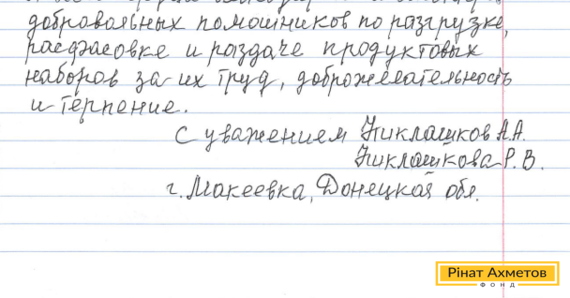 добровольных помошников по разгрузке,
расфасовке и раздаче продуктовых
наборов за их труд, доброжелательность
и терпение.
С уважением Никлашков А.А.
Никлашкова Р.В.
г. Макеевка, Донецкая обл.
Рінат Ахметов
ФОНД